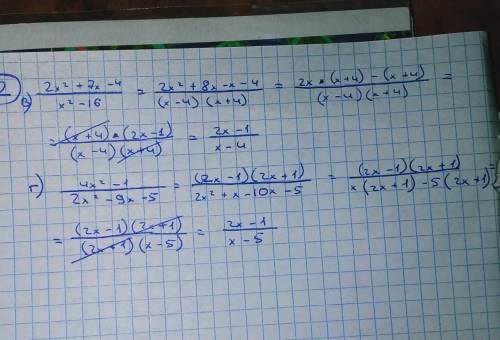 в) (2x² + 7x - 4)/(x² - 16) = (2x² + 8x - x - 4)/((x - 4)(x + 4)) = (2x * (x + 4) - (x + 4))/((x - 4)(x + 4)) =
= ((x + 4) * (2x - 1))/((x - 4)(x + 4)) = (2x - 1)/(x - 4)
г) (4x² - 1)/(2x² - 9x - 5) = ((2x - 1)(2x + 1))/(2x² + x - 10x - 5) = ((2x - 1)(2x + 1))/(x(2x + 1) - 5(2x + 1)) =
= ((2x - 1)(2x + 1))/((2x + 1)(x - 5)) = (2x - 1)/(x - 5)